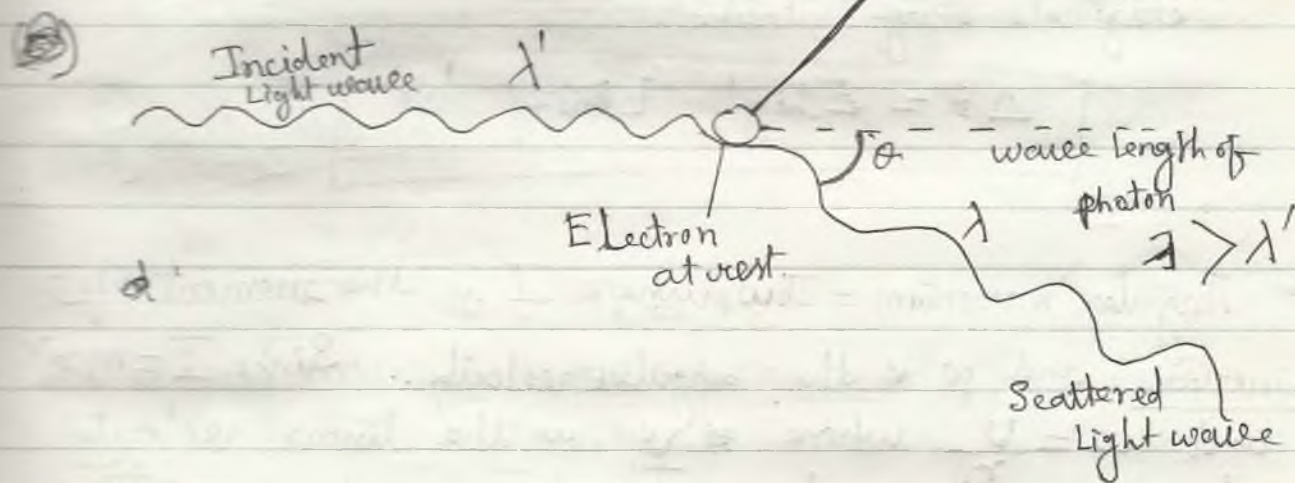 Incident
Light wave
λ'
θ
wave length of
photon
λ > λ'
Electron
at rest.
λ
Scattered
Light wave